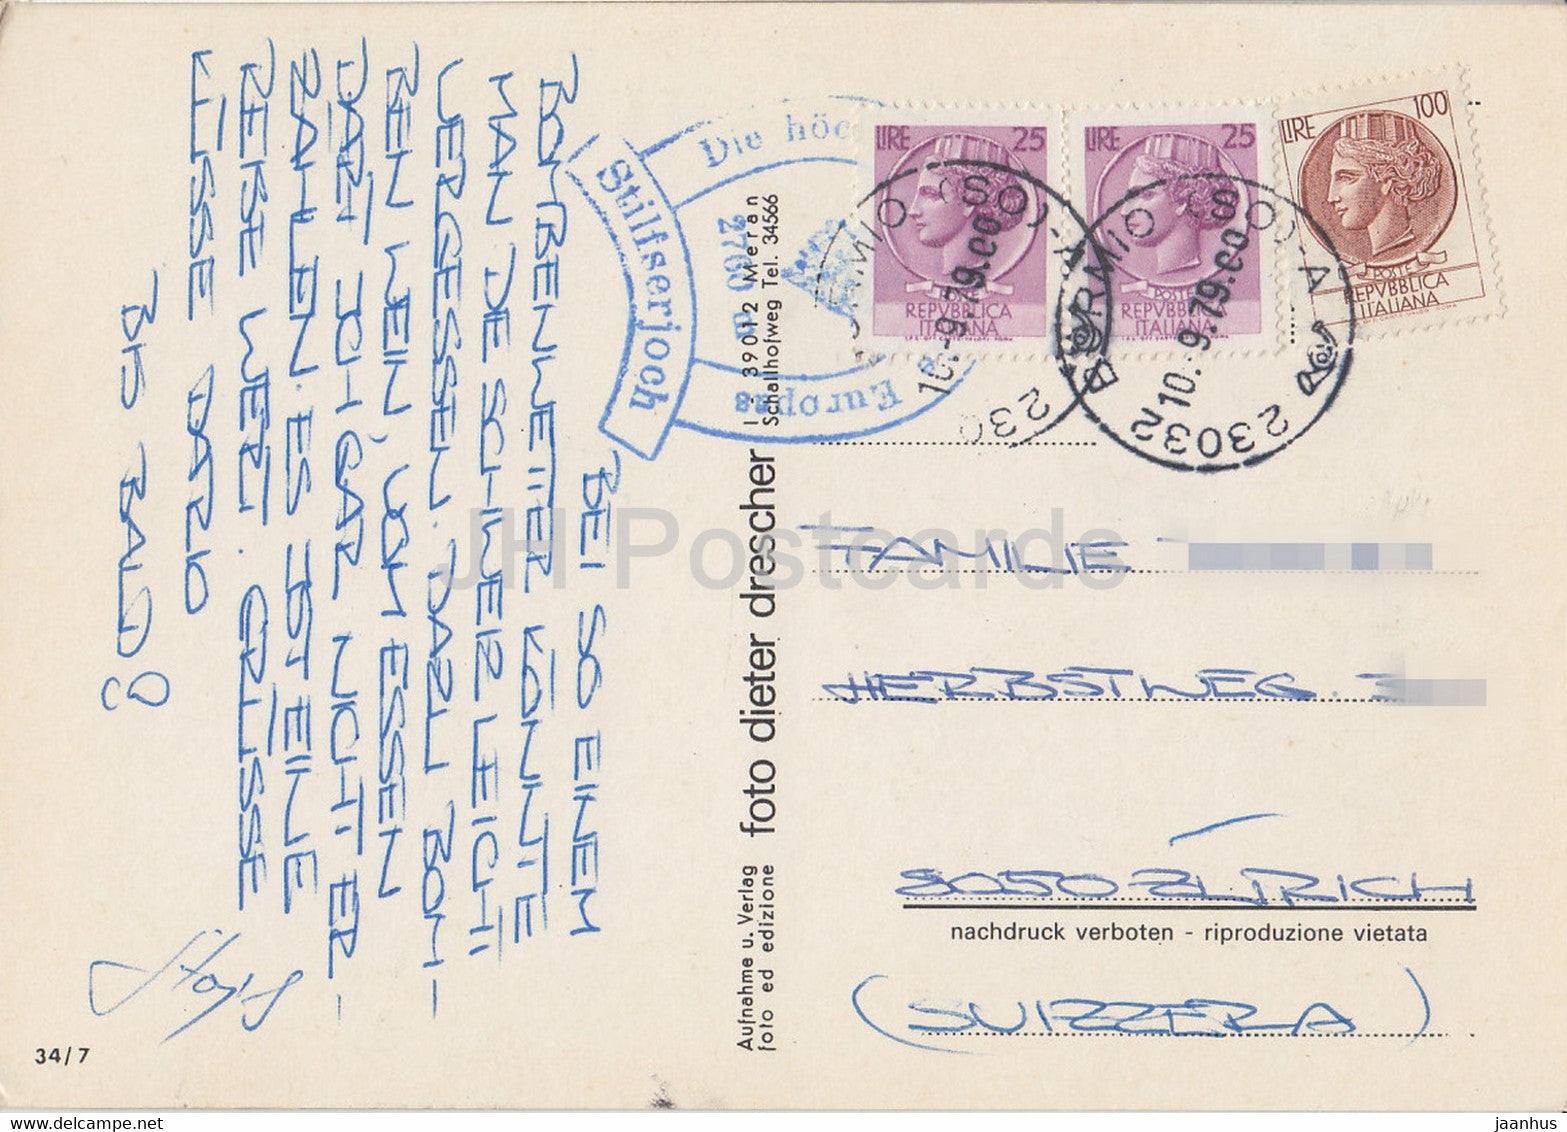 BEI SO EINEM
BOMBENWETTER KÖNNTE
MAN DIE SCHWEIZ LEICHT
VERGESSEN. DAZU BOM-
BEN WEIN, VOM ESSEN
DARF ICH GAR NICHT ER-
ZÄHLEN. ES IST EINE
REISE WERT. GRÜSSE
KÜSSE DARIO
BIS BALD!
34/7
Stilfserjoch
Die höc
2760 m
Europas
Aufnahme u. Verlag
foto ed edizione
foto dieter drescher
I - 39012 Meran
Schallhofweg Tel. 34566
LIRE 25
POSTE
REPVBBLICA
ITALIANA
LIRE 25
POSTE
REPVBBLICA
ITALIANA
LIRE 100
POSTE
REPVBBLICA
ITALIANA
10.-9.79.00
230
23032 BORMIO (SO) - A
10.-9.79.00
FAMILIE
HERBSTWEG
8050 ZÜRICH
nachdruck verboten - riproduzione vietata
(SVIZZERA)
JH Postcards
jaanhus / www.delcampe.net